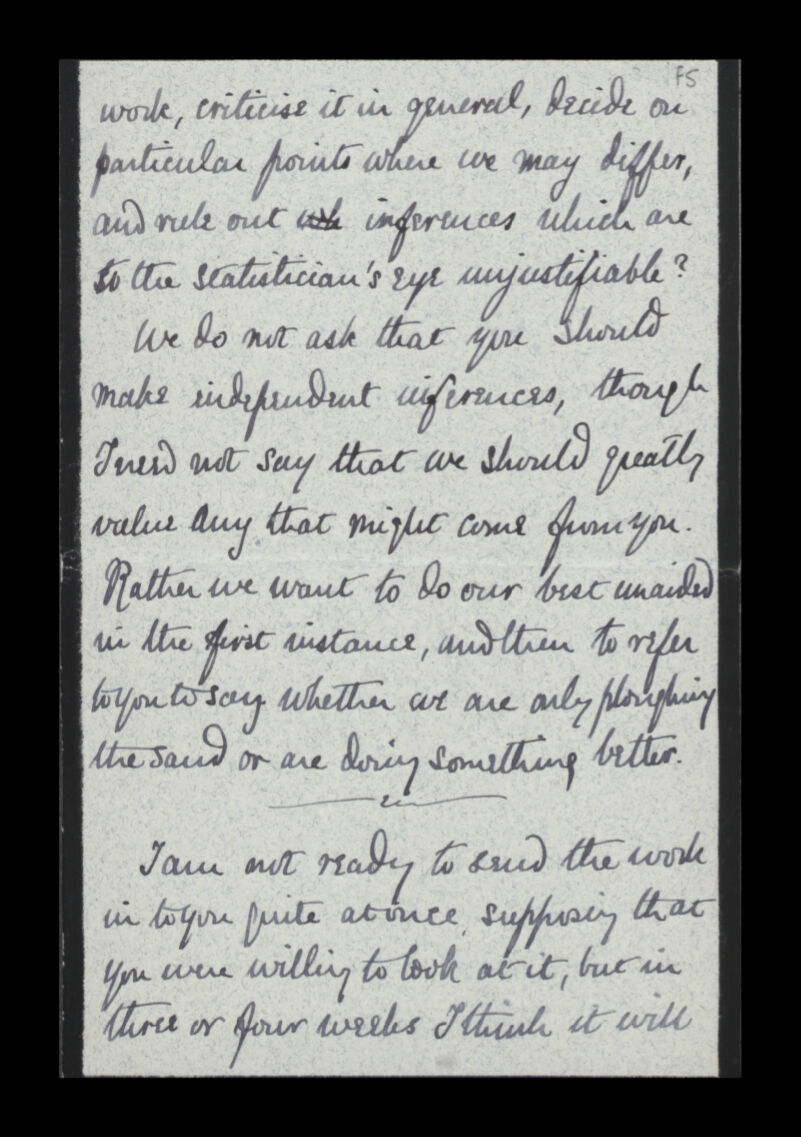 F5
work, criticise it in general, decide on
particular points where we may differ,
and rule out wh inferences which are
to the statistician's eye unjustifiable?
We do not ask that you should
make independent inferences, though
I need not say that we should greatly
value any that might come from you.
Rather we want to do our best unaided
in the first instance, and then to refer
to you to say whether we are only ploughing
the sand or are doing something better.
I am not ready to send the work
in to you quite at once, supposing that
you were willing to look at it, but in
three or four weeks I think it will